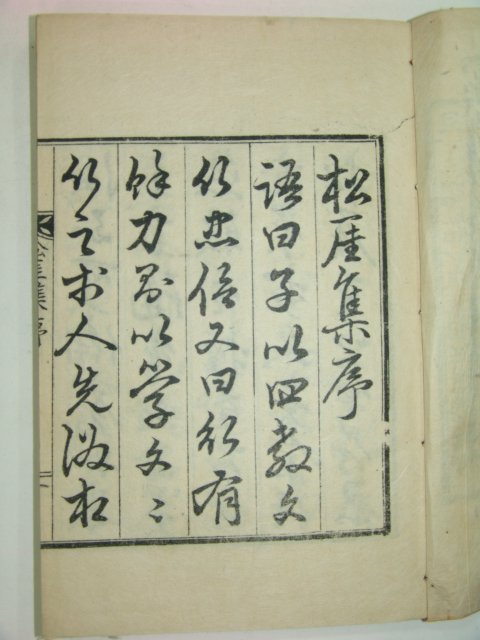 松崖集序
語曰子以四教文
行忠信又曰行有
餘力則以学文〻
行之於人先後本
松崖集序